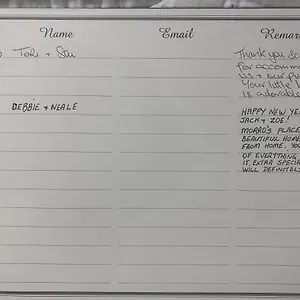 Name Email Remar
Tori + Stu Thank you so
for accomm
us + our fu
Your little
is adorable
DEBBIE + NEALE HAPPY NEW YEA
JACK + ZOE!
MORRO'S PLACE
BEAUTIFUL HOME
FROM HOME, YOU
OF EVERYTHING
IT, EXTRA SPECIA
WILL DEFINITELY